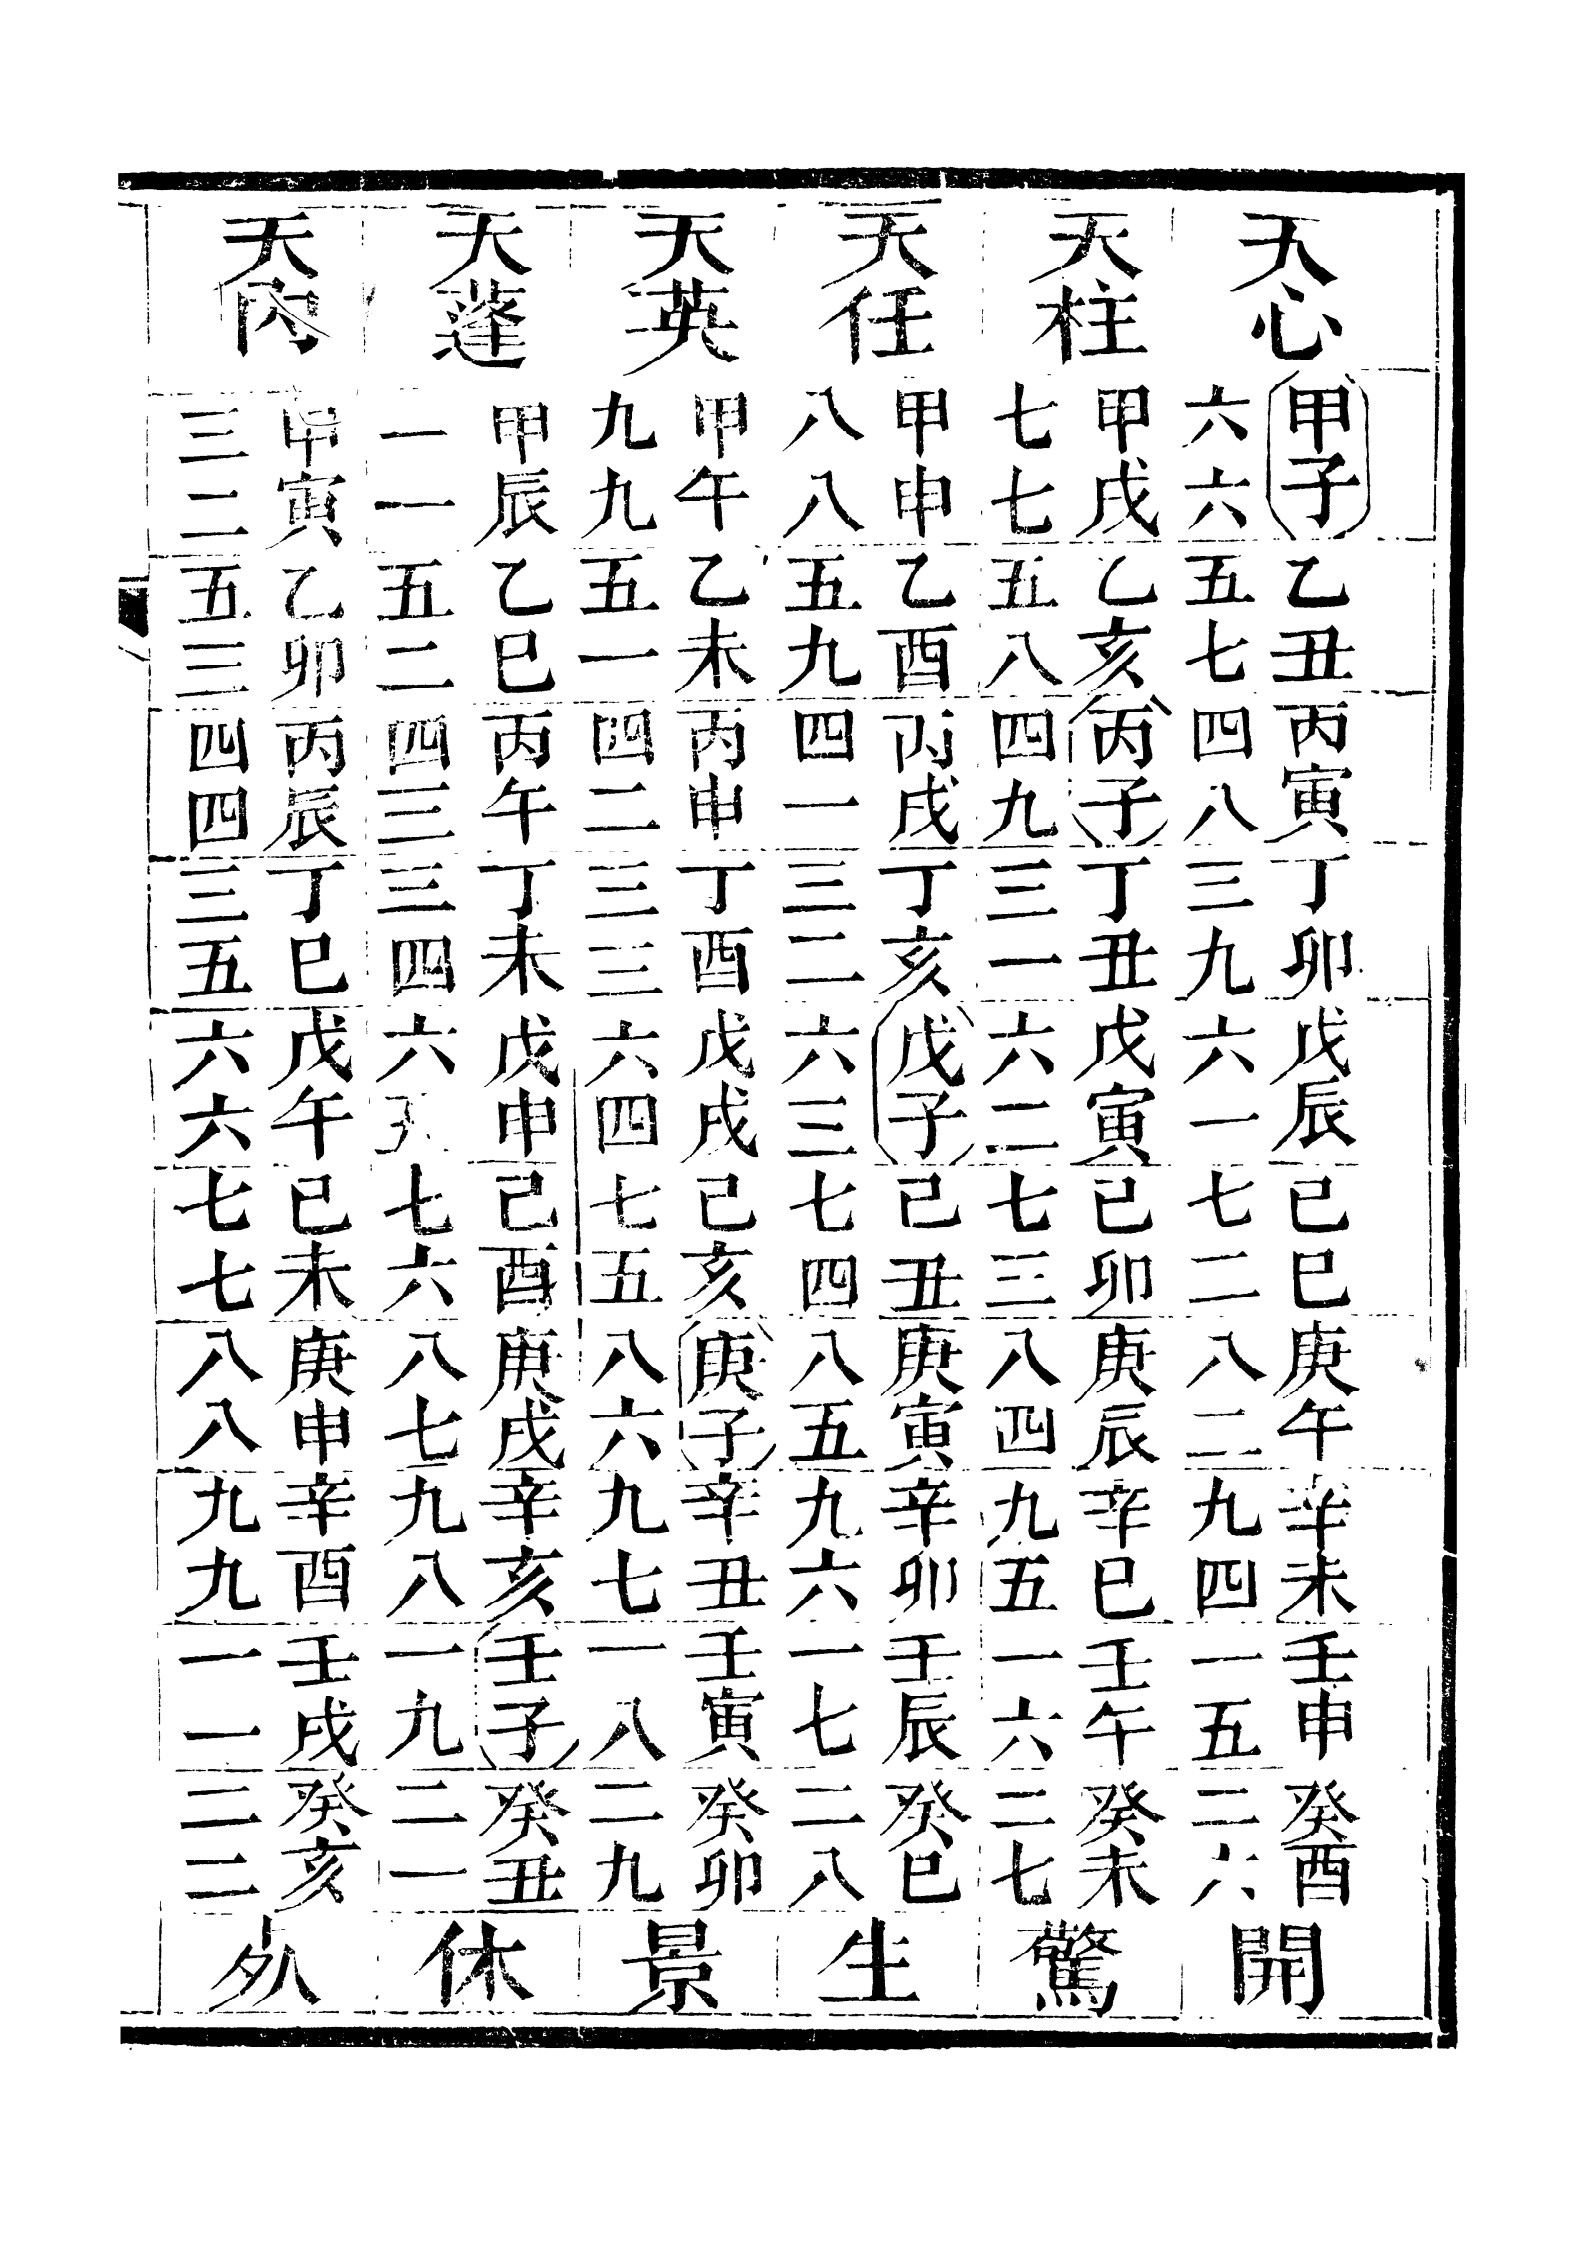 天心
甲子乙丑丙寅丁卯戊辰己巳庚午辛未壬申癸酉
六六五七四八三九六一七二八二九四一五二六
開
天柱
甲戌乙亥丙子丁丑戊寅己卯庚辰辛巳壬午癸未
七七五八四九三一六二七三八四九五一六二七
驚
天任
甲申乙酉丙戌丁亥戊子己丑庚寅辛卯壬辰癸巳
八八五九四一三二六三七四八五九六一七二八
生
天英
甲午乙未丙申丁酉戊戌己亥庚子辛丑壬寅癸卯
九九五一四二三三六四七五八六九七一八二九
景
天蓬
甲辰乙巳丙午丁未戊申己酉庚戌辛亥壬子癸丑
一一五二四三三四六七六八七九八一九二一
休
天芮
甲寅乙卯丙辰丁巳戊午己未庚申辛酉壬戌癸亥
三二五三四四三五六六七七八八九九一一二二